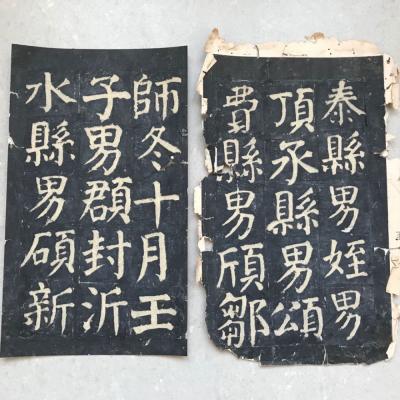 師冬十月壬
子男頵封沂
水縣男碩新
泰縣男姪男
頂承縣男頌
費縣男頎鄒